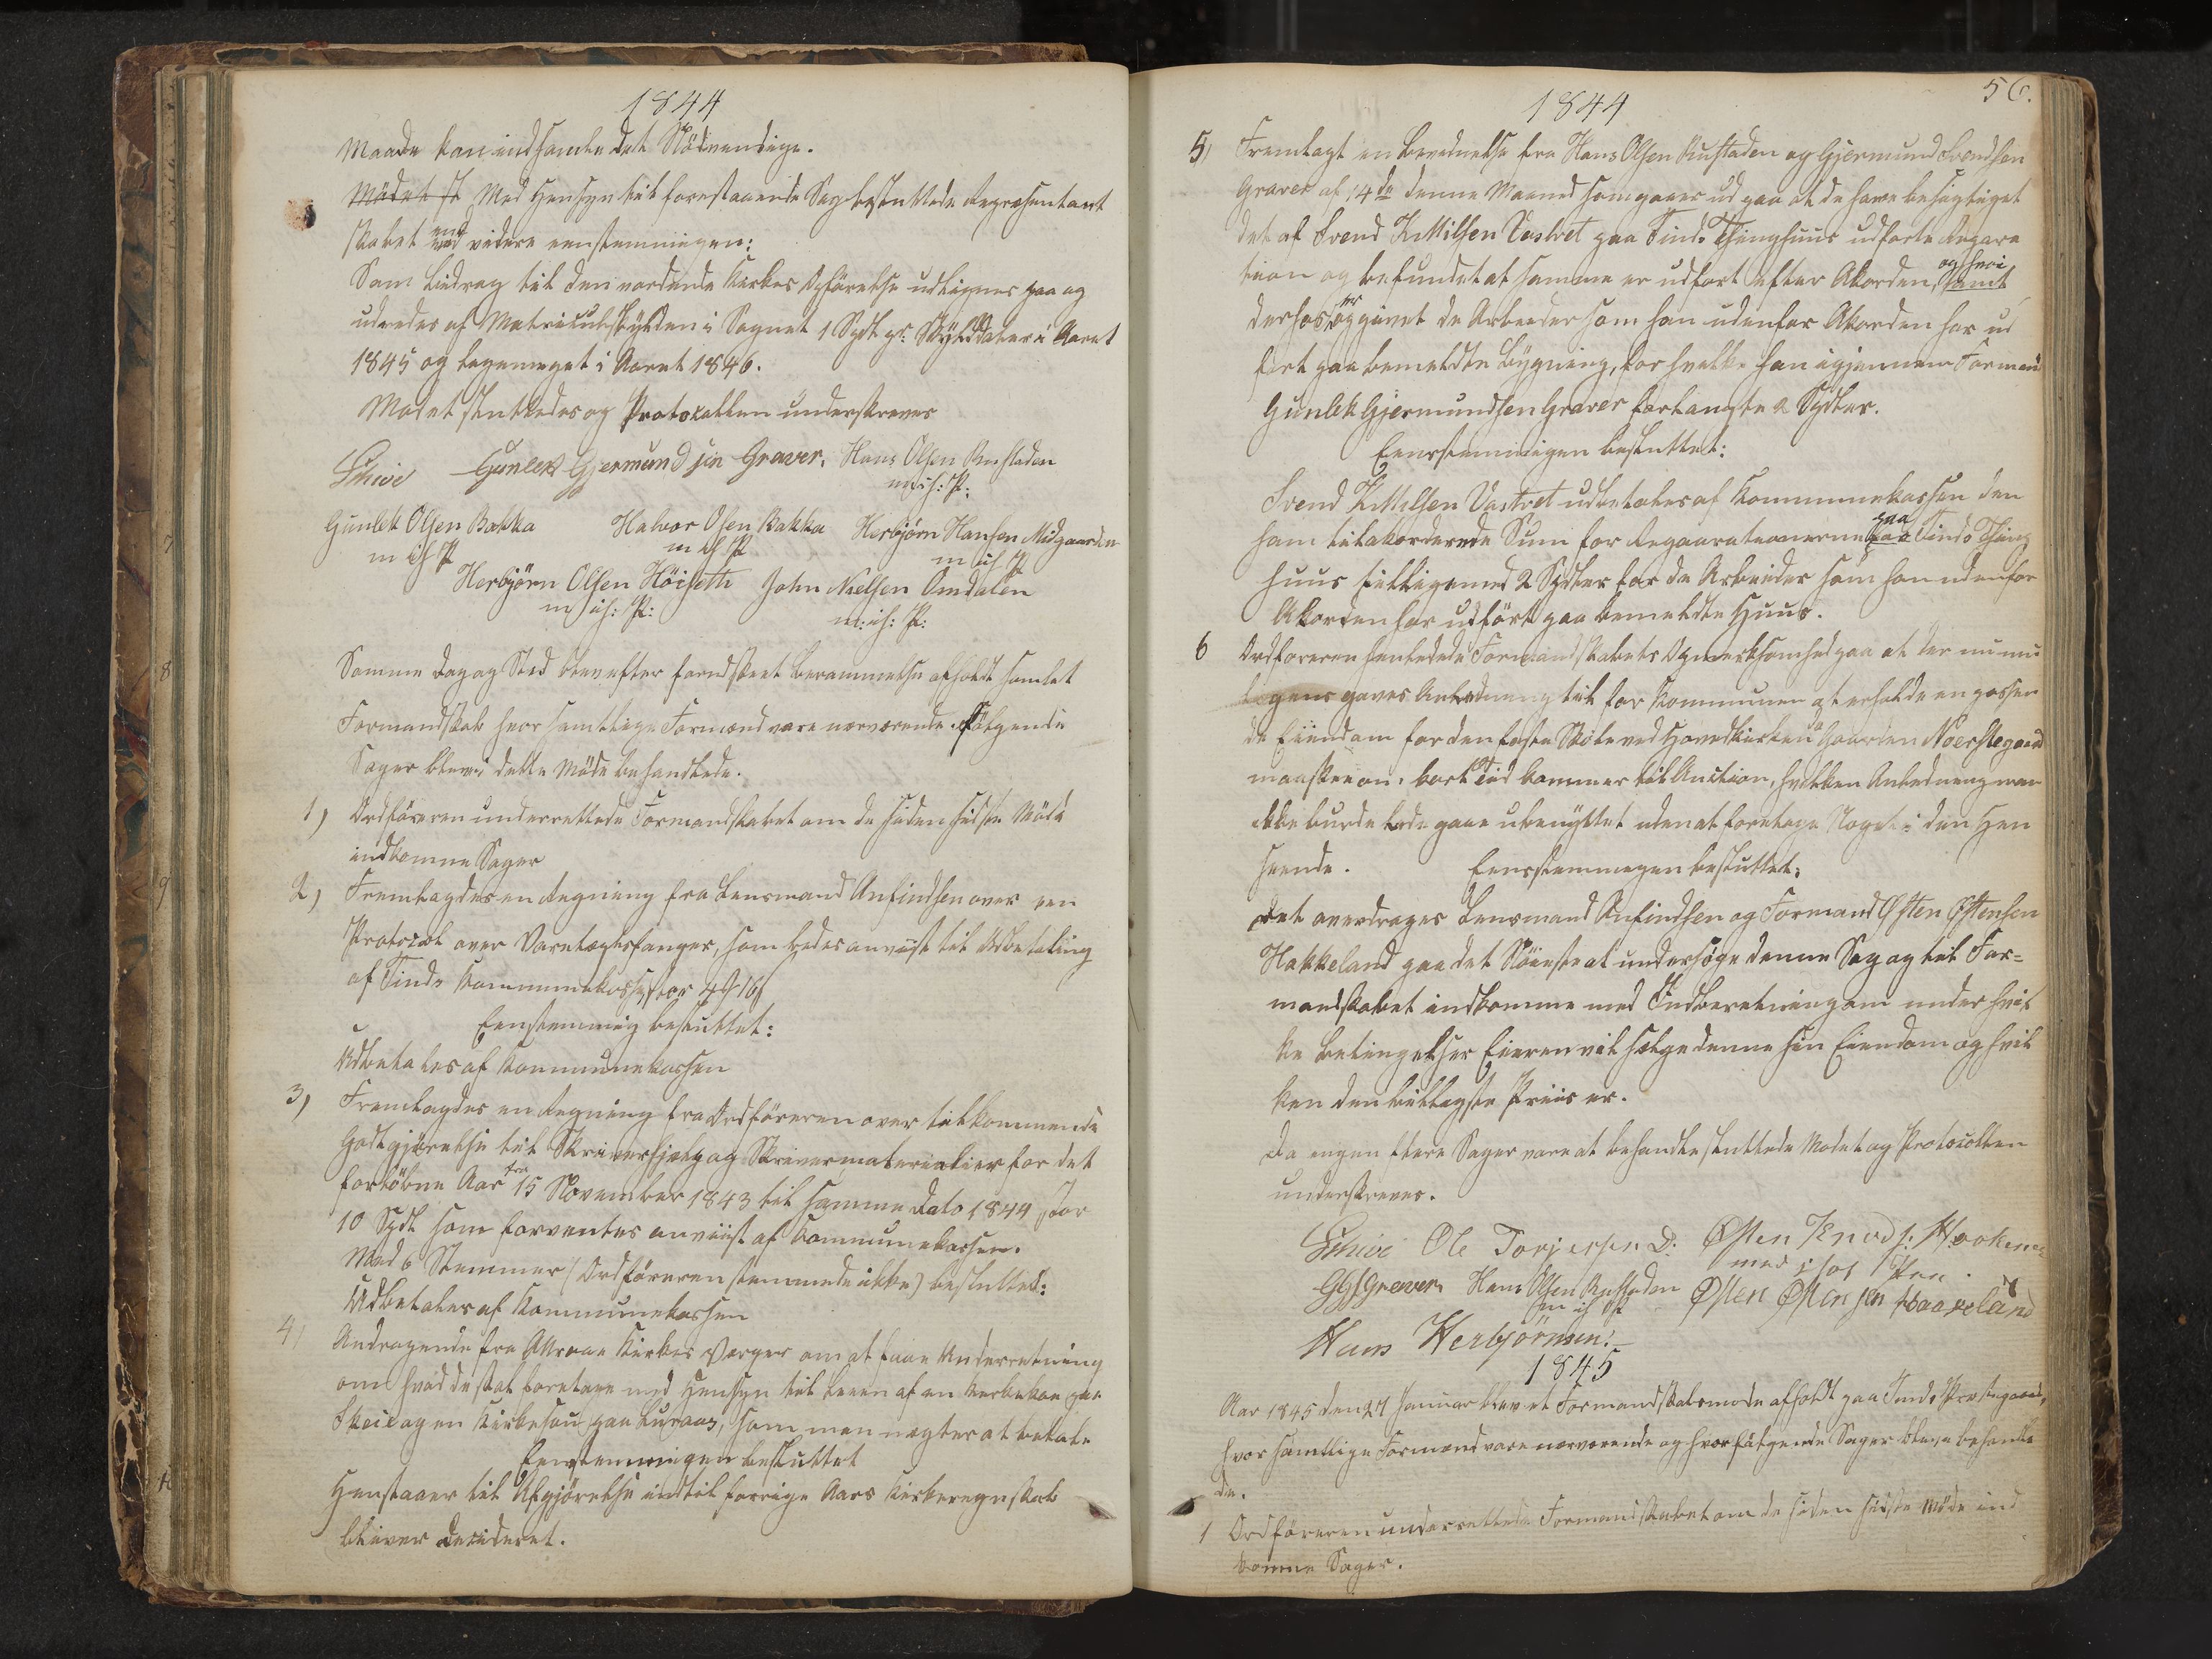 1844
Maade kan indsamle det Nödvendige.
Mödet sl Med Hensyn til forestaaende Sag besluttede Repræsentant
skabet end videre eenstemmigen:
Som Bidrag til den vordende Kirkes Opförelse udlignes paa og
udredes af Matriculskylden i Sognet 1 Spdl pr: Skylddaler i Aaret
1845 og ligemeget i Aaret 1846.
Mödet sluttedes og Protocollen underskreves
Schive Gunlek Gjermundsen Graver, Hans Olsen Rustaden
m: ih: P:
Gunlek Olsen Bakka Halvor Olsen Bakka Herbjörn Hansen Midgaarden
m ih P m ih P m ih P
Herbjörn Olsen Höiseth John Nielsen Omdalen
m ih: P: m: ih: P:
Samme Dag og Sted blev efter forudskeet Berammelse afholdt samlet
Formandskab hvor samtlige Formænd vare nærværende. Fölgende
Sager blev i dette Möde behandlede.
1) Ordföreren underrettede Formandskabet om de siden sidste Möde
indkomne Sager
2) Fremlagdes en Regning fra Lensmand Anfindsen over een
Protocol over Varetægtsfanger, som bedes anviist til Udbetaling
af Tinds Kommunekasse, stor
Eenstemmig besluttet:
Udbetales af Kommunekassen
3) Fremlagdes en Regning fra Ordföreren over tilkommende
Godtgjörelse til Skriverhjælp og Skrivermaterialier for det
forløbne Aar fra 15 November 1843 til samme Dato 1844, stor
10 Spdl som forventes anviist af Kommunekassen.
Med 6 Stemmer (Ordföreren stemmede ikke) besluttet:
Udbetales af Kommunekassen
4) Andragende fra Attraae Kirkes Værger om at faae Underretning
om hvad de skal foretage med Hensyn til Leien af en Kirkekoe paa
og en Kirkekoe paa Luraas, som man nægter at betale
Eenstemmigen besluttet
Henstaaer til Afgjörelse indtil forrige Aars Kirkeregnskab
bliver decideret.
56.
1844
5) Fremlagt en Bevidnelse fra Hans Olsen Rustaden og Gjermund Svendsen
Graver af 14de denne Maaned som gaaer ud paa at de have besigtiget
det af Svend Kittilsen Vastvet paa Tinds Thinghuus udførte Repara
tion og befundet at samme er udført efter Akorden, samt og hvor
derhos er opgivet de Arbeider som han udenfor Akorden har ud
ført paa bemeldte Bygning, for hvilke han igjennem Formand
Gunlek Gjermundsen Graver forlangte 2 Spdlr.
Eensstemmigen besluttet:
Svend Kittilsen Vastvet udbetales af Kommunekassen den
ham tilakorderede Sum for Reparationerne paa Tinds Thing
huus tilligemed 2 Spdlr for de Arbeider som han udenfor
Akorden har udført paa bemeldte Huus.
6 Ordføreren henledede Formandskabets Opmærksomhed paa at der nu mu
ligens gaves Anledning til for Kommunen at erholde en passen
de Eiendom for den faste Skole ved Hovedkirken da Gaarden Noerstegaard
maaskee om kort Tid kommer til Auction, hvilken Anledning man
ikke burde lade gaae ubenyttet uden at foretage Noget i den Hen
seende. Eensstemmigen besluttet:
Det overdrages Lensmand Anfindsen og Formand Østen Østensen
Hakkeland paa det Nöieste at undersöge denne Sag og til For=
mandskabet indkomme med Indberetning om under hvil
ke Betingelser Eieren vil sælge denne sin Eiendom og hvil
ken den billigste Priis er.
Da ingen flere Sager vare at behandle sluttede Mödet og Protocollen
underskreves.
Schive Ole Torjersen D: Østen Knuds: Haakenes
med ihol Pen.
GGsGraver Hans Olsen Rustaden Østen Østensen Haakeland
m ih P
Hans Herbjörnsen:
1845
Aar 1845 den 27 Januar blev et Formandskabsmøde afholdt paa Tinds Prestegaard,
hvor samtlige Formænd vare nærværende og hvor fölgende Sager bleve behandle
de.
1 Ordföreren underrettede Formandskabet om de siden sidste Möde ind
komne Sager.